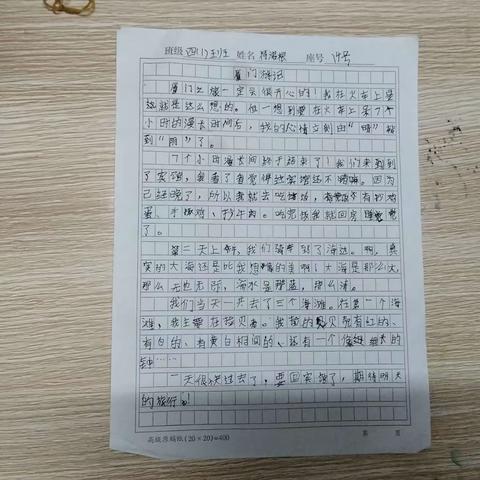 班级 四(1)班 姓名 座号 19号
厦门游记
厦门之旅一定会很开心的!我在火车上是
这就是这么想的。但一想到要在火车上呆7个
小时的漫长时间后,我的心情立刻由“晴”转
到“雨”了。
7个小时漫长间终于结束了!我们来到到
了宾馆,我看了看觉得这宾馆还不错嘛。因为
已经晚了,所以我就去吃烧烤,有炒鸡
蛋、手撕鸡、炒牛肉。吃完饭我就回房睡觉
了。
第二天上午,我们骑车到了海边。啊,真
实的大海还是比我想的美啊!大海是那么大,
那么无边无际,海水是那蓝,那么清。
我们当天一共去了三个海滩。在第一个海
滩,我主要在捡贝壳。我捡的贝壳有红的、
有白的、有黄白相间的、还有一个
钟……
一天很快过去了,要回宾馆了,期待明天
的旅行!
高级原稿纸(20×20)=400 第 页